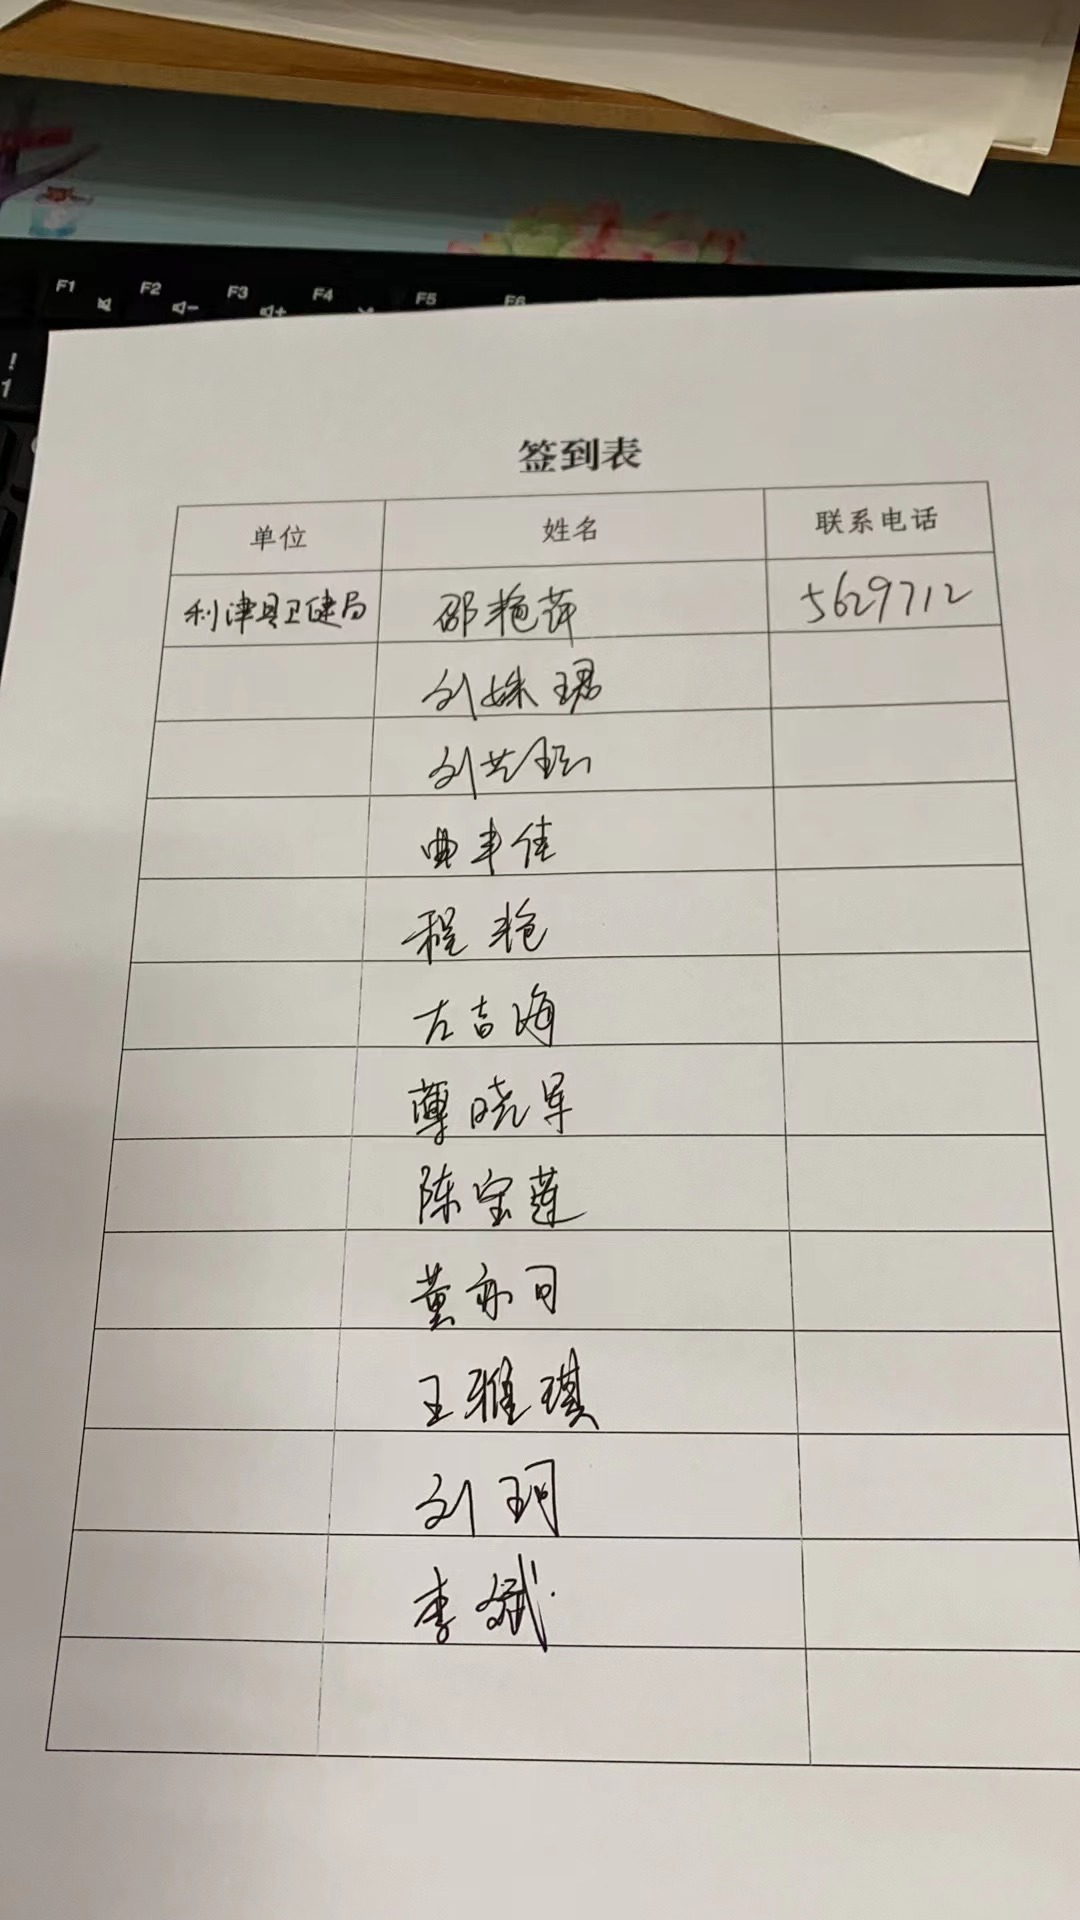 F1 F2 F3 F4 F5 F6
!
1
签到表
单位 姓名 联系电话
利津县卫健局 邵艳萍 5629712
刘姝珺
刘芸
曲丰佳
程艳
古吉海
薄晓军
陈宝莲
董亦可
王雅琪
刘珂
李斌